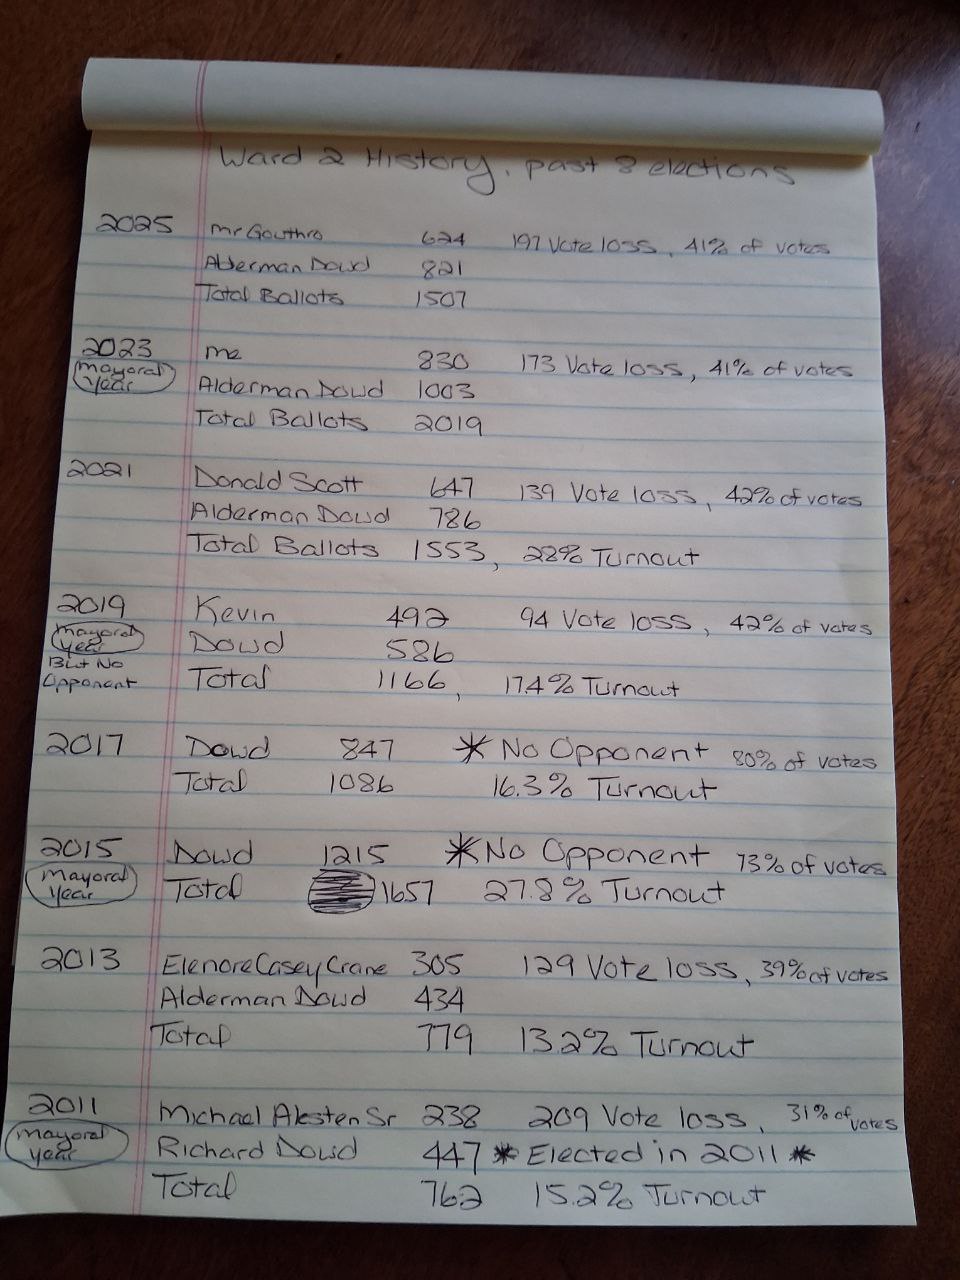 Ward 2 History, past 8 elections
2025 Mr Gouthro 624 197 Vote loss, 41% of votes
Alderman Dowd 821
Total Ballots 1507
2023 me 830 173 Vote loss, 41% of votes
Mayoral Year Alderman Dowd 1003
Total Ballots 2019
2021 Donald Scott 647 139 Vote loss, 42% of votes
Alderman Dowd 786
Total Ballots 1553, 28% Turnout
2019 Kevin 492 94 Vote loss, 42% of votes
Mayoral Year Dowd 586
But No Opponent Total 1166, 17.4% Turnout
2017 Dowd 847 * No Opponent 80% of votes
Total 1086 16.3% Turnout
2015 Dowd 1215 * No Opponent 73% of votes
Mayoral Year Total 1657 27.8% Turnout
2013 Elenore Casey Crane 305 129 Vote loss, 39% of votes
Alderman Dowd 434
Total 779 13.2% Turnout
2011 Michael Aksten Sr 238 209 Vote loss, 31% of votes
Mayoral Year Richard Dowd 447 * Elected in 2011 *
Total 762 15.2% Turnout